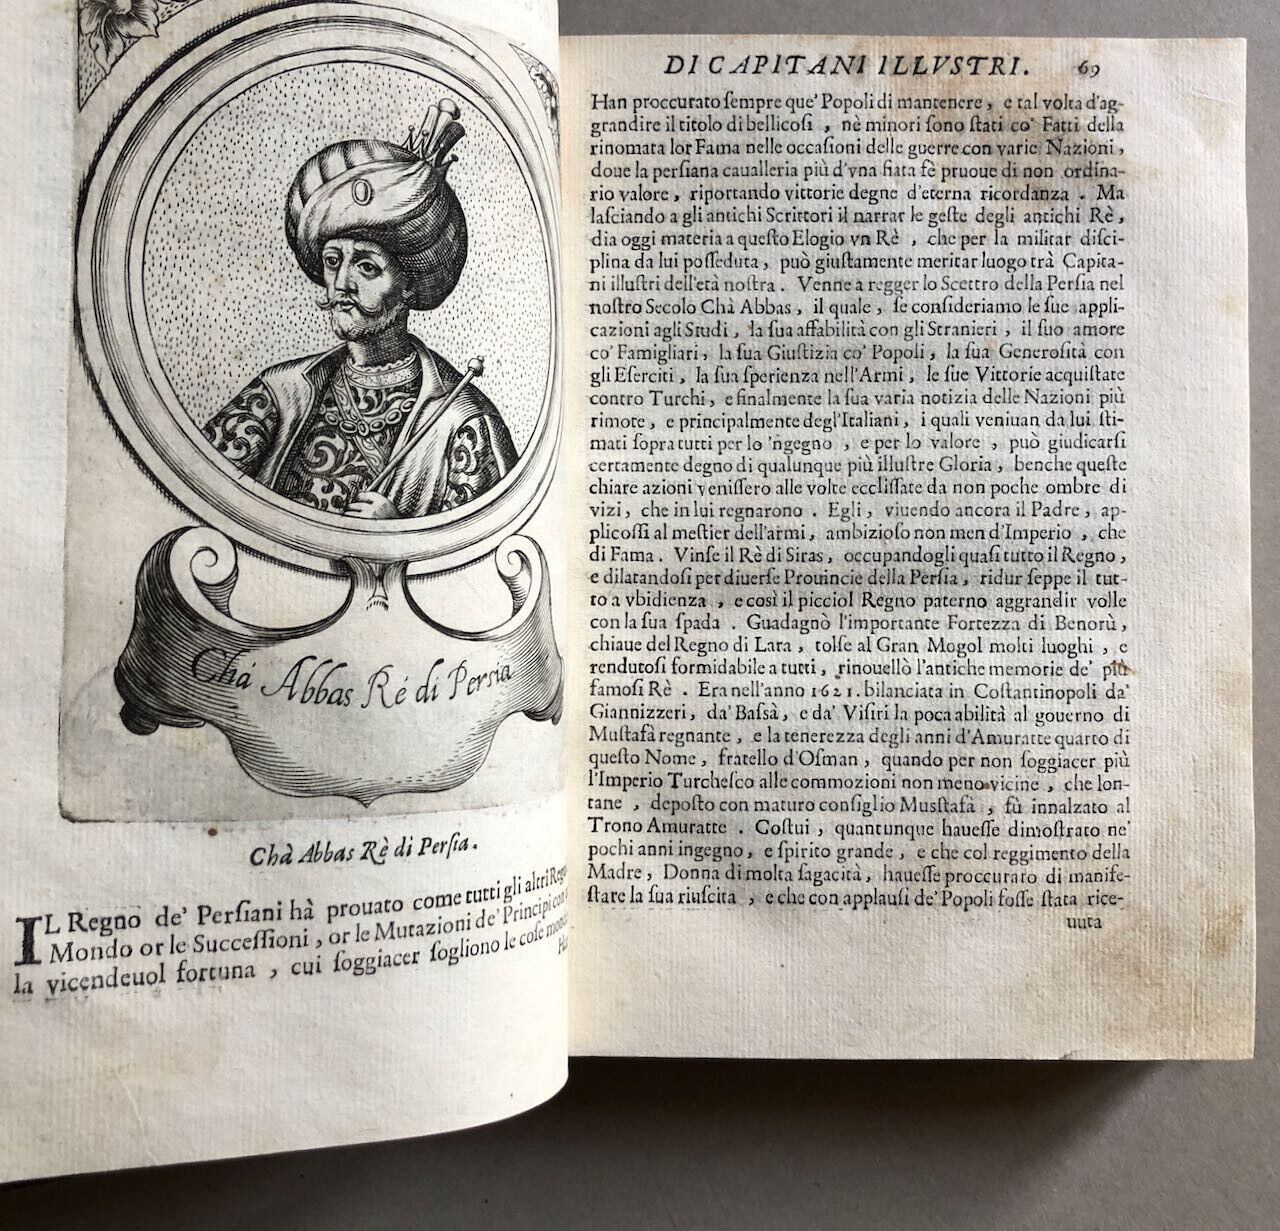 Chá Abbas Ré di Persia
Chà Abbas Rè di Perſia.
IL Regno de' Perſiani hà prouato come tutti gli altri
Mondo or le Succeſſioni, or le Mutazioni de' Principi
la vicendeuol fortuna, cui ſoggiacer ſogliono le coſe
DI CAPITANI ILLVSTRI. 69
Han proccurato ſempre que' Popoli di mantenere, e tal volta d'ag-
grandire il titolo di bellicoſi, nè minori ſono ſtati co' Fatti della
rinomata lor Fama nelle occaſioni delle guerre con varie Nazioni,
doue la perſiana caualleria più d'vna fiata fè pruoue di non ordina-
rio valore, riportando vittorie degne d'eterna ricordanza. Ma
laſciando a gli antichi Scrittori il narrar le geſte degli antichi Rè,
dia oggi materia a queſto Elogio vn Rè, che per la militar diſci-
plina da lui poſſeduta, può giuſtamente meritar luogo trà Capita-
ni illuſtri dell'età noſtra. Venne a regger lo Scettro della Perſia nel
noſtro Secolo Chà Abbas, il quale, ſe conſideriamo le ſue appli-
cazioni agli Studi, la ſua affabilità con gli Stranieri, il ſuo amore
co' Famigliari, la ſua Giuſtizia co' Popoli, la ſua Generoſità con
gli Eſerciti, la ſua ſperienza nell'Armi, le ſue Vittorie acquiſtate
contro Turchi, e finalmente la ſua varia notizia delle Nazioni più
rimote, e principalmente degl'Italiani, i quali veniuan da lui ſti-
mati ſopra tutti per lo 'ngegno, e per lo valore, può giudicarſi
certamente degno di qualunque più illuſtre Gloria, benche queſte
chiare azioni veniſſero alle volte eccliſſate da non poche ombre di
vizi, che in lui regnarono. Egli, viuendo ancora il Padre, ap-
plicoſſi al meſtier dell'armi, ambizioſo non men d'Imperio, che
di Fama. Vinſe il Rè di Siras, occupandogli quaſi tutto il Regno,
e dilatandoſi per diuerſe Prouincie della Perſia, ridur ſeppe il tut-
to a vbidienza, e così il picciol Regno paterno aggrandir volle
con la ſua ſpada. Guadagnò l'importante Fortezza di Benorù,
chiaue del Regno di Lara, tolſe al Gran Mogol molti luoghi, e
rendutoſi formidabile a tutti, rinouellò l'antiche memorie de' più
famoſi Rè. Era nell'anno 1621. bilanciata in Coſtantinopoli da'
Giannizzeri, da' Baſsà, e da' Viſiri la poca abilità al gouerno di
Muſtafà regnante, e la tenerezza degli anni d'Amuratte quarto di
queſto Nome, fratello d'Oſman, quando per non ſoggiacer più
l'Imperio Turcheſco alle commozioni non meno vicine, che lon-
tane, depoſto con maturo conſiglio Musſtafà, fù innalzato al
Trono Amuratte. Coſtui, quantunque haueſſe dimoſtrato ne'
pochi anni ingegno, e ſpirito grande, e che col reggimento della
Madre, Donna di molta ſagacità, haueſſe proccurato di manife-
ſtare la ſua riuſcita, e che con applauſi de' Popoli foſſe ſtata rice-
uuta